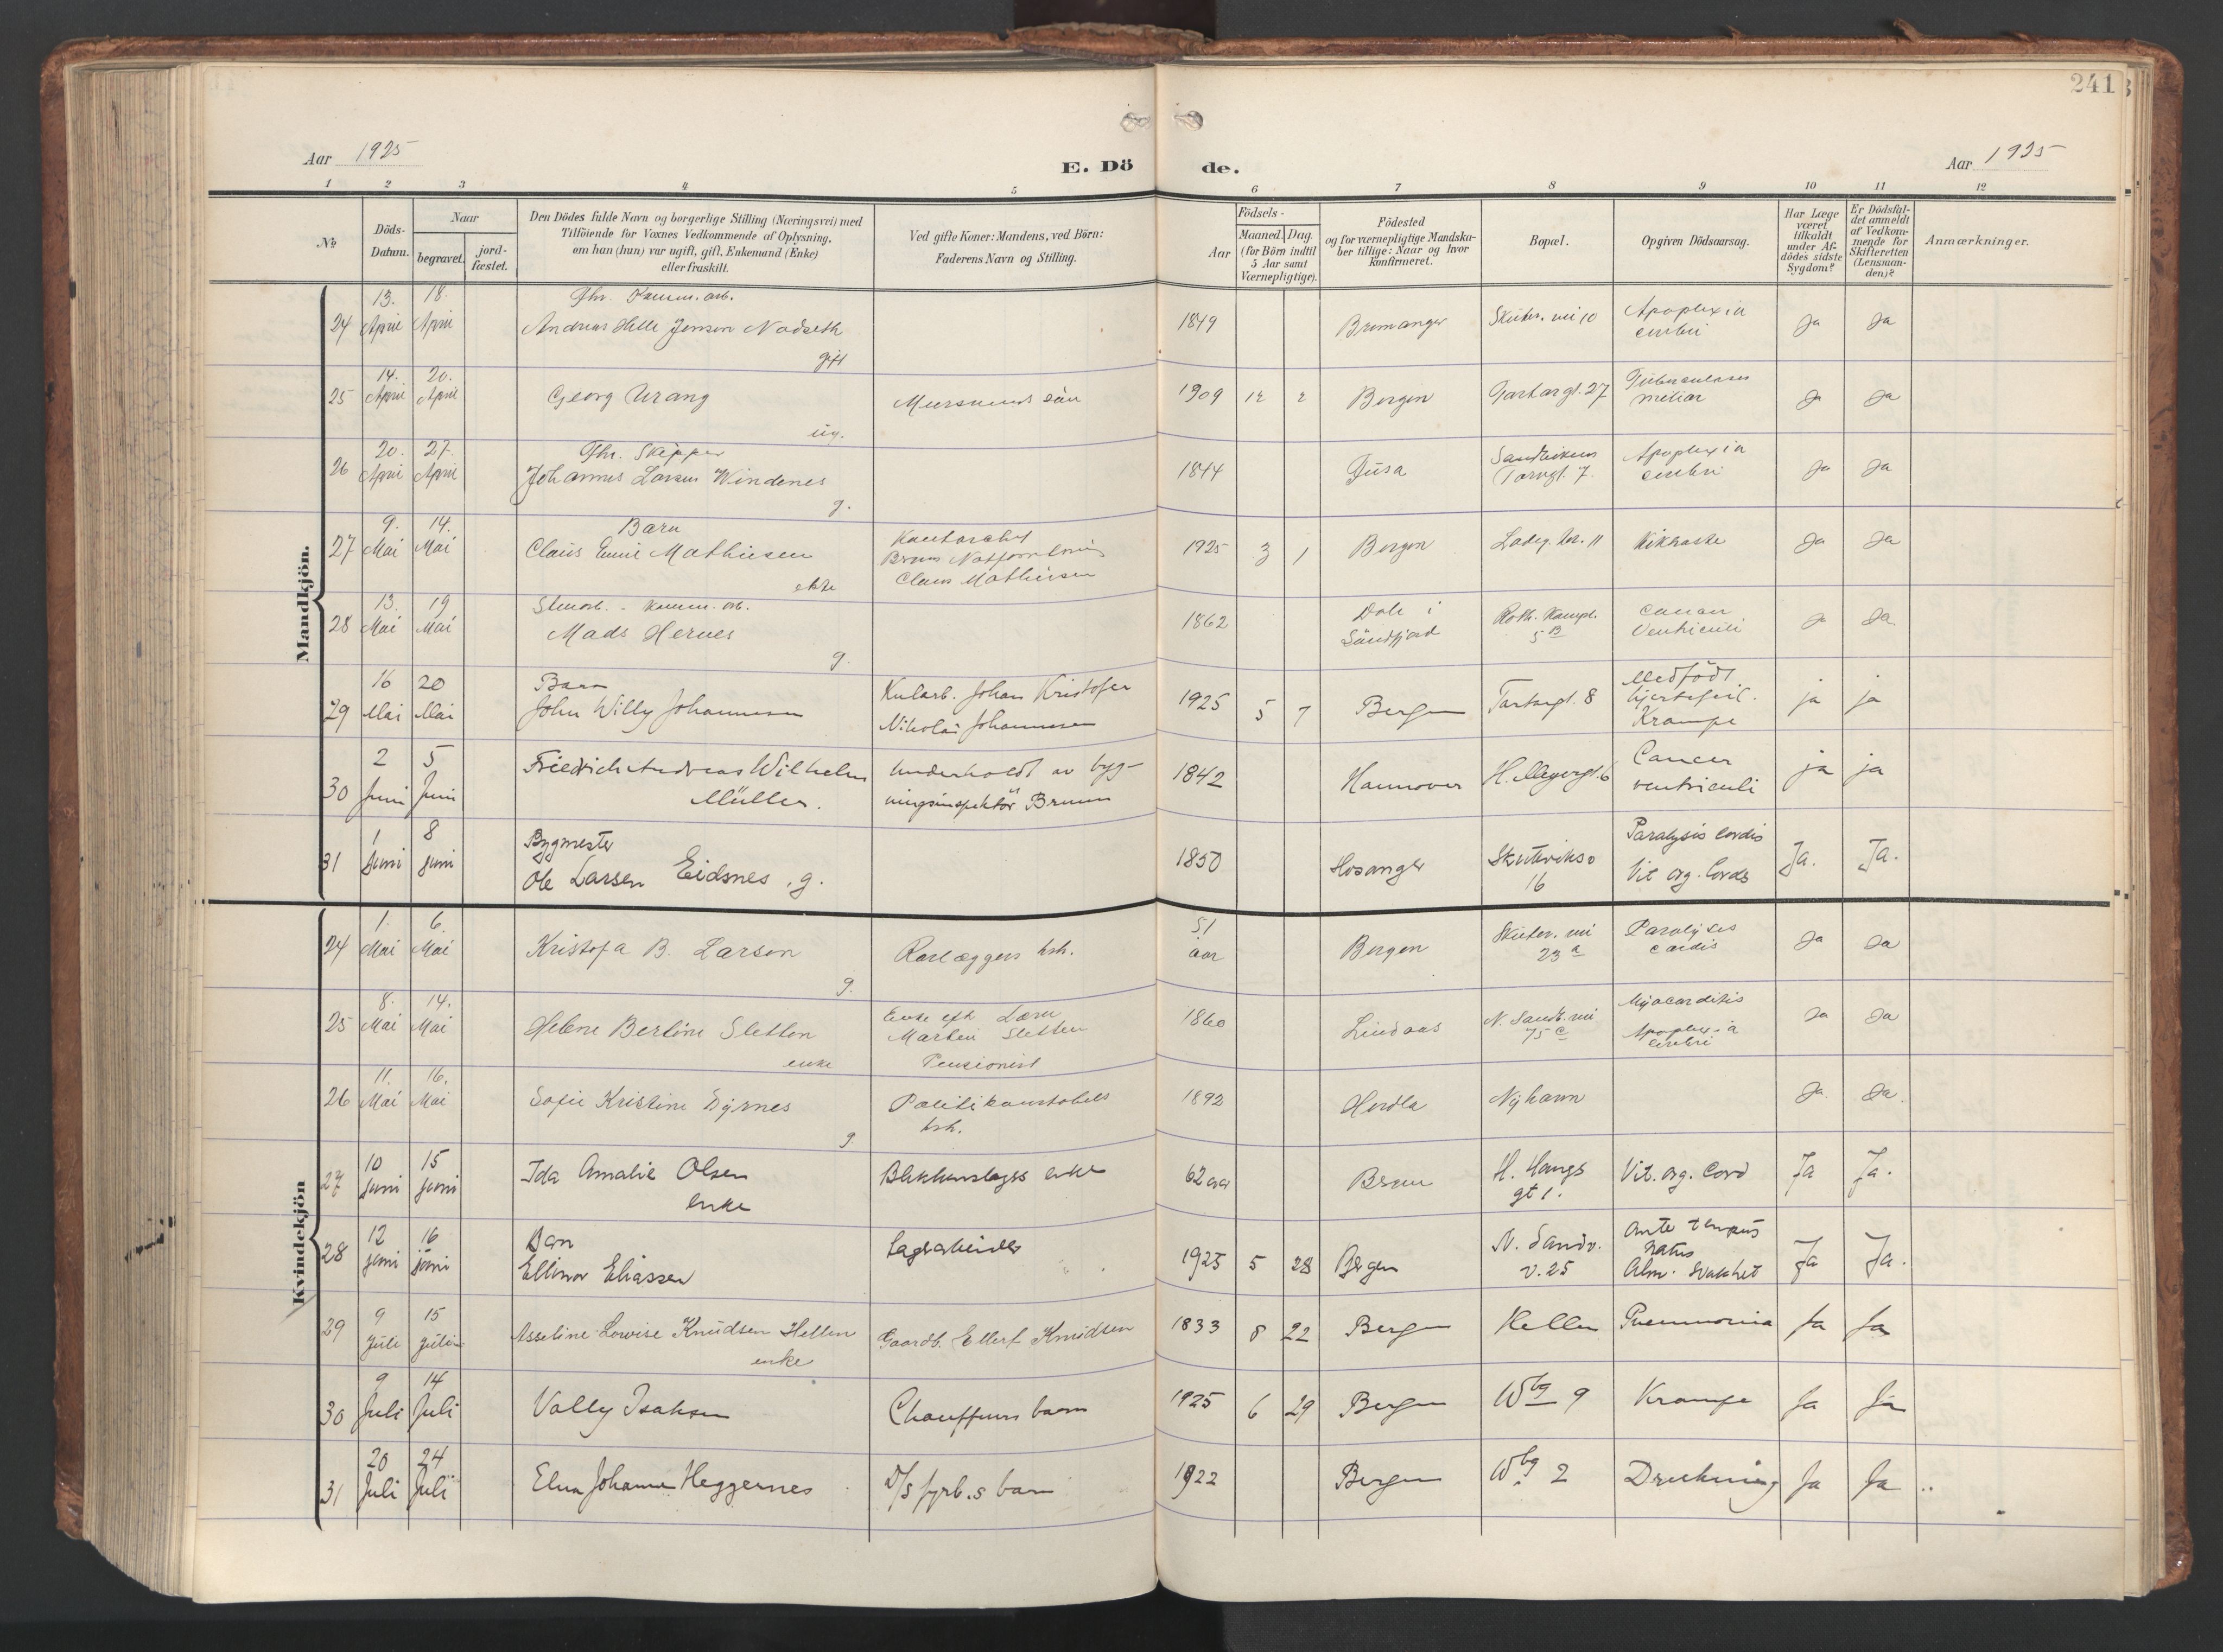 241
Aar 1925
E. Dö de.
Aar 1925
1 2 3 4 5 6 7 8 9 10 11 12
No
Döds-
Datum.
Naar
begravet.
jord-
fæstet.
Den Dödes fulde Navn og borgerlige Stilling (Næringsvei) med
Tilföiende for Voxnes Vedkommende af Oplysning,
om han (hun) var ugift, gift, Enkemand (Enke)
eller fraskilt.
Ved gifte Koner: Mandens, ved Börn:
Faderens Navn og Stilling.
Födsels-
Aar
Maaned. Dag.
(for Börn indtil
5 Aar samt
Værnepligtige).
Födested
og for værnepligtige Mandska-
ber tillige: Naar og hvor
konfirmeret.
Bopæl.
Opgiven Dödsaarsag.
Har Læge
været
tilkaldt
under Af-
dödes sidste
Sygdom?
Er Dödsfal-
det anmeldt
af Vedkom-
mende for
Skifteretten
(Lensman-
den)?
Anmærkninger.
Mandkjön.
24 13. April 18. April Fhv. Komm. arb.
Andreas Helle Jenson Nodseth
gift
1849 Bremanger Skutev. vei 10 Apoplexia
cerebri Ja Ja
25 14. April 20. April Georg Urang
ug.
Murermests sön 1909 12 2 Bergen Tartargt. 27 Ja Ja
26 20. April 27. April Fhv. Skipper
Johannes Larsen Windenes
g.
1844 Fusa Sandvikens
Torvgt. 7. Apoplexia
cerebri Ja Ja
27 9. Mai 14. Mai Barn
Claus Emil Mathiesen
ekte
Claus Mathiesen
1925 3 1 Bergen Ladeg. 11 Kikhoste Ja Ja
28 13. Mai 19 Mai Stenarb. - Komm. arb.
Mads Hernes
g.
1862 Dale i
Söndfjord 5 B Cancer
Ventriculi Ja Ja.
29 16 Mai 20 Mai Barn
John Willy Johannesen
Kularb. Johan Kristofer
Nikolai Johannesen
1925 5 7 Bergen Tartargt. 8 Medfödt
hjertefeil.
Krampe ja ja
30 2 Juni 5 Juni Friedrich Andreas Wilhelm
Müller.
Underholdt av byg-
ningsinspektör Bruun
1842 Hannover H. Meyergt. 6 Cancer
ventriculi ja ja
31 1 Juni 8 juni Bygmester
Ole Larsen Eidsnes. g.
1850 Hosanger Skuteviks
16 Paralysis Cordis
Vit org. Cordis Ja. Ja.
Kvindekjön
24 1. Mai 6. Mai Kristofa B. Larsen
g.
Rörlæggers hstr. 51
aar Bergen Skutev. vei
23 a Paralysis
cordis Ja Ja
25 8. Mai 14. Mai Helene Bertine Sletten
enke
Enke eft.
Martin Sletten
Pensionist
1860 Lindaas N. Sandv. vei
75 c Myocarditis
Apoplexia
cerebri Ja Ja
26 11. Mai 16. Mai Sofie Kristine Dyrnes
g.
Politikonstabels
hstr.
1892 Herdla Nyhavn Ja. Ja.
27 10 juni 15 juni Ida Amalie Olsen
enke
Blikkenslagers enke 62 aar H. Haugs
gt 1. Vit. org. Cord Ja Ja.
28 12 juni 16 juni Barn
Ellinor Eliassen
Lagerarbeider 1925 5 28 Bergen N. Sandv.
v. 25 Ante tempus
natus
Alm. svakhet Ja Ja.
29 9 Juli 15 Juli Asseline Lovise Knudsen Hellen
enke
Gaardb. Ellert Knudsen 1833 8 22 Bergen Hellen Pneumonia Ja Ja
30 9 Juli 14 Juli Vally Isaksen Chauffeurs barn 1925 6 29 Bergen Wbg 9 Krampe Ja Ja
31 20 Juli 24 Juli Elna Johanne Heggernes D/s fyrb.s barn 1922 Bergen Wbg. 2 Drukning Ja Ja